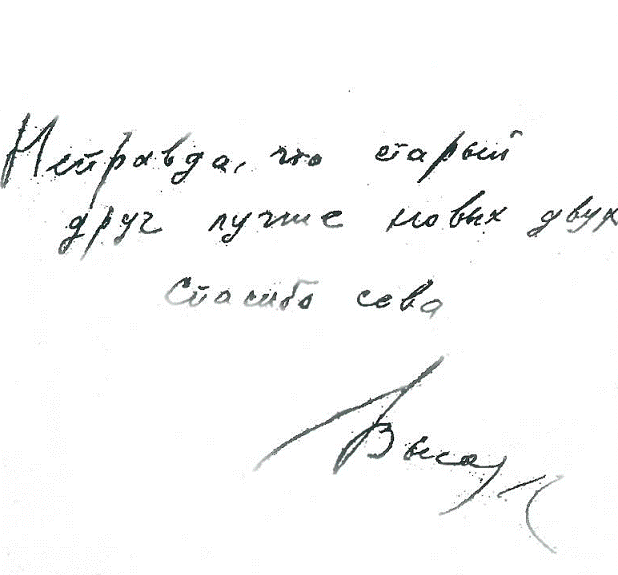 Неправда, что старый
друг лучше новых двух
Спасибо сева
Высоц